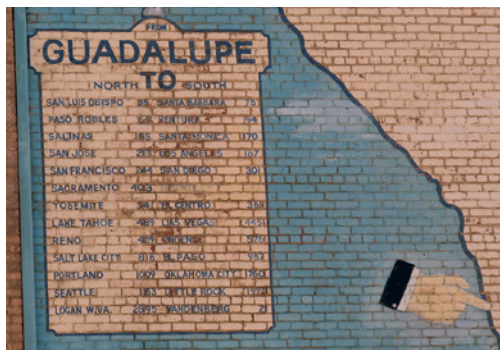 FROM
GUADALUPE
TO
NORTH SOUTH
SAN LUIS OBISPO SANTA BARBARA 75
PASO ROBLES VENTURA
SALINAS 185 SANTA MONICA 170
SAN JOSE 213 LOS ANGELES 167
SAN FRANCISCO 244 SAN DIEGO 301
SACRAMENTO 403
YOSEMITE EL CENTRO
LAKE TAHOE LAS VEGAS
RENO
SALT LAKE CITY 816 EL PASO
PORTLAND 1009 OKLAHOMA CITY 1760
SEATTLE LITTLE ROCK
LOGAN W.VA. VANDENBERG 21